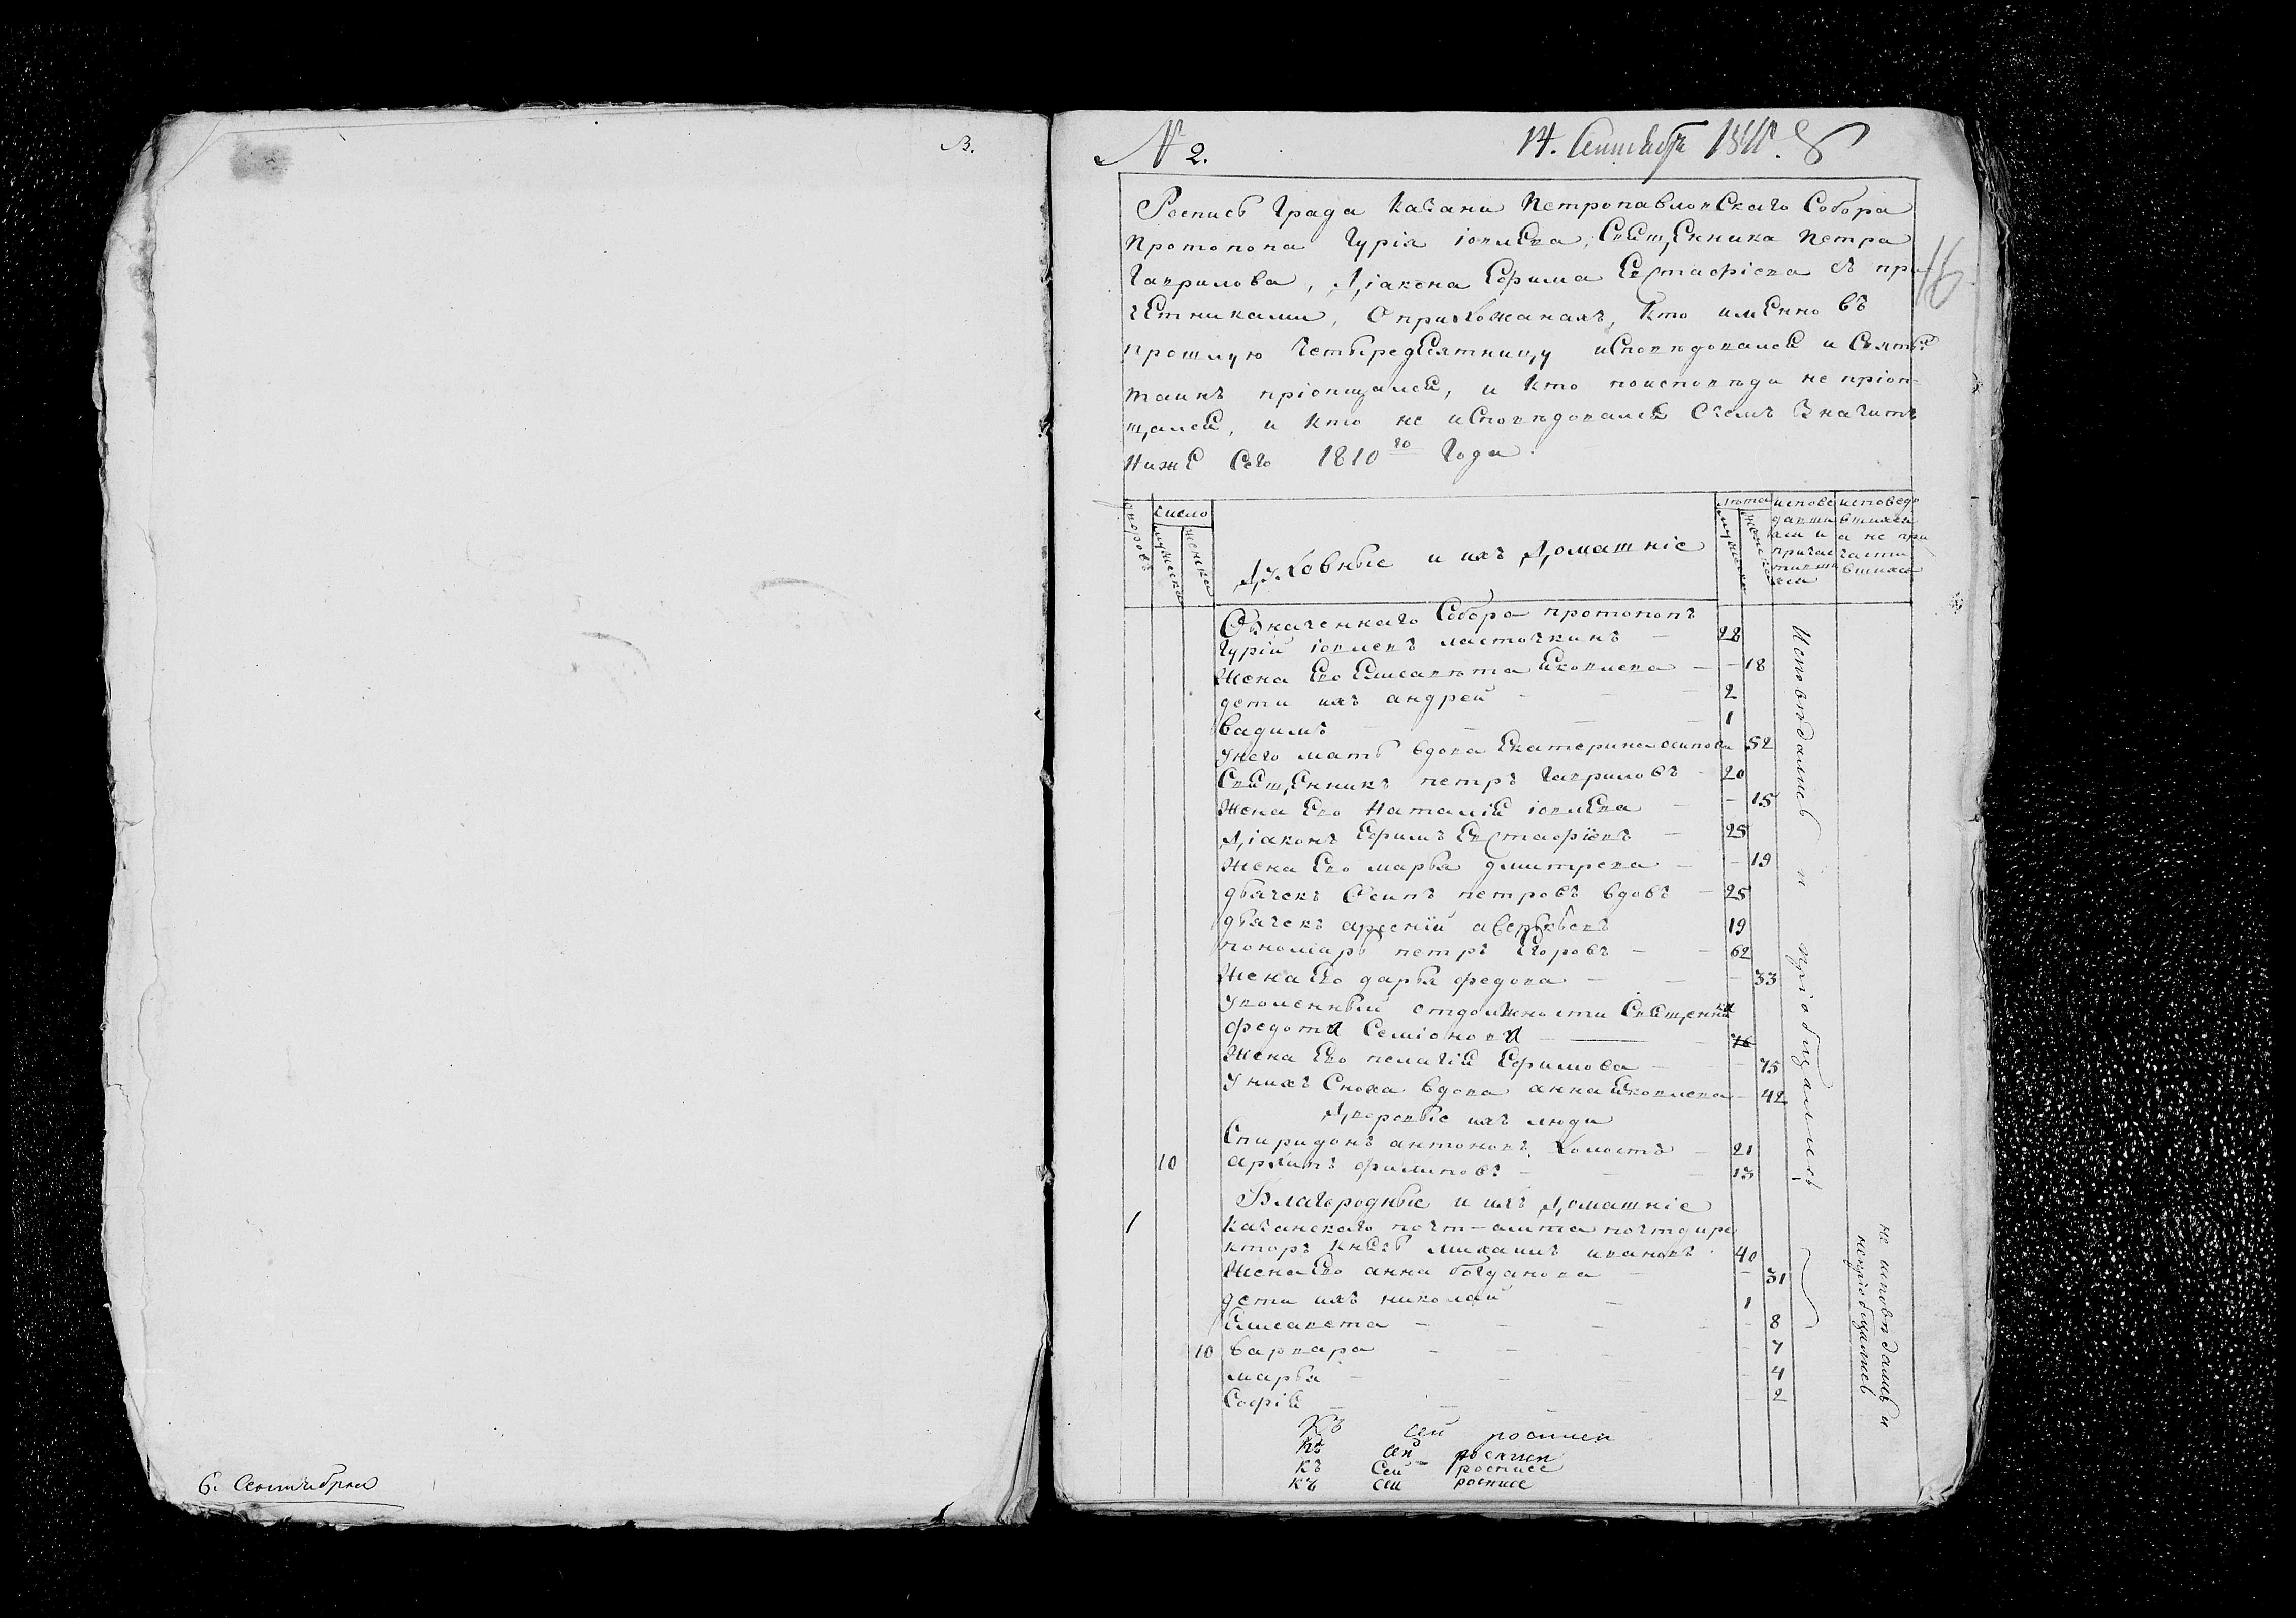 3.
6. Сентября
№ 2.
14. Сентября 1811.
16
Роспись Града Казани Петропавловскаго Собора
Протопопа Гурія іовлева, Священника Петра
Гаврилова, Діакона Ефима Евстафіева съ при-
четниками, О прихожанахъ, кто именно въ
прошлую Четыредесятницу исповѣдовался и Святыхъ
таинъ пріопщался, и кто поисповѣди не пріоп-
щался, и кто не исповѣдовался Очемъ Значитъ
Ниже Сего 1810го Года.
дворовъ
число
мужеска
женска
Духовные и ихъ Домашніе
лѣта
мужеска
женска
испове
давши
хся и
причас
тивши
хся
исповедо
вшихся
а не при
части
вшихся
Означеннаго Собора протопопъ
Гурій іовлевъ ласточкинъ — 28
Жена Его Елисавѣта Яковлева — 18
дети ихъ андрей — 2
вадимъ — 1
Унего мать вдова Екатерина осипова 52
Священникъ петръ Гавриловъ 20
Жена Его Наталія іовлева — 15
Діаконъ Ефимъ Евстафіевъ — 25
Жена Его марья дмитрева — 19
дьячекъ Осипъ петровъ вдовъ — 25
дьячекъ арсеній аверкьевъ 19
пономарь петръ Егоровъ — 62
Жена Его дарья федова — 33
Уволенный отдолжности Священника
федота Семіонова — 76
Жена Его пелагія Ефимова — 75
У нихъ Сноха вдова анна Яковлева — 42
Дворовые ихъ люди
Спиридонъ антоновъ Холостъ — 21
10 архипъ филиповъ — 13
Благородные и ихъ Домашніе
1 Казанскаго почт-амта почтдире
кторъ Князь михаилъ ивановъ 40
Жена Его анна богданова — 31
дети ихъ николай — 1
Елисавета — 8
10 варвара — 7
марья — 4
Софія — 2
Исповѣдались и пріобщались
не исповѣдались и
непріобщались
Къ сей росписи
Къ сей росписи
къ сей росписе
къ сей росписе